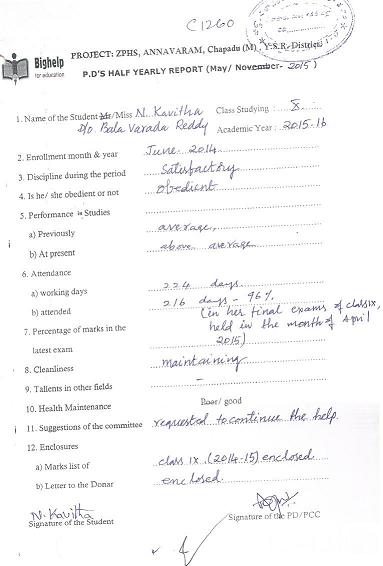 C1260
Bighelp
for education
PROJECT: ZPHS, ANNAVARAM, Chapadu (M), Y.S.R. District
P.D'S HALF YEARLY REPORT (May/ November- 2015)
1. Name of the Student Mr/Miss N. Kavitha Class Studying : X
D/o. Bala Varada Reddy Academic Year : 2015-16
2. Enrollment month & year June. 2014
3. Discipline during the period Satisfactory
4. Is he/ she obedient or not obedient
5. Performance in Studies
a) Previously average,
b) At present above average
6. Attendance
a) working days 224 days
b) attended 216 days - 96%
7. Percentage of marks in the latest exam (in her final exams of class ix, held in the month of April 2015)
8. Cleanliness maintaining
9. Tallents in other fields -
10. Health Maintenance Poor/ good
11. Suggestions of the committee requested to continue the help.
12. Enclosures
a) Marks list of class ix (2014-15) enclosed
b) Letter to the Donar enclosed.
N. Kavitha
Signature of the Student Signature of the PD/PCC